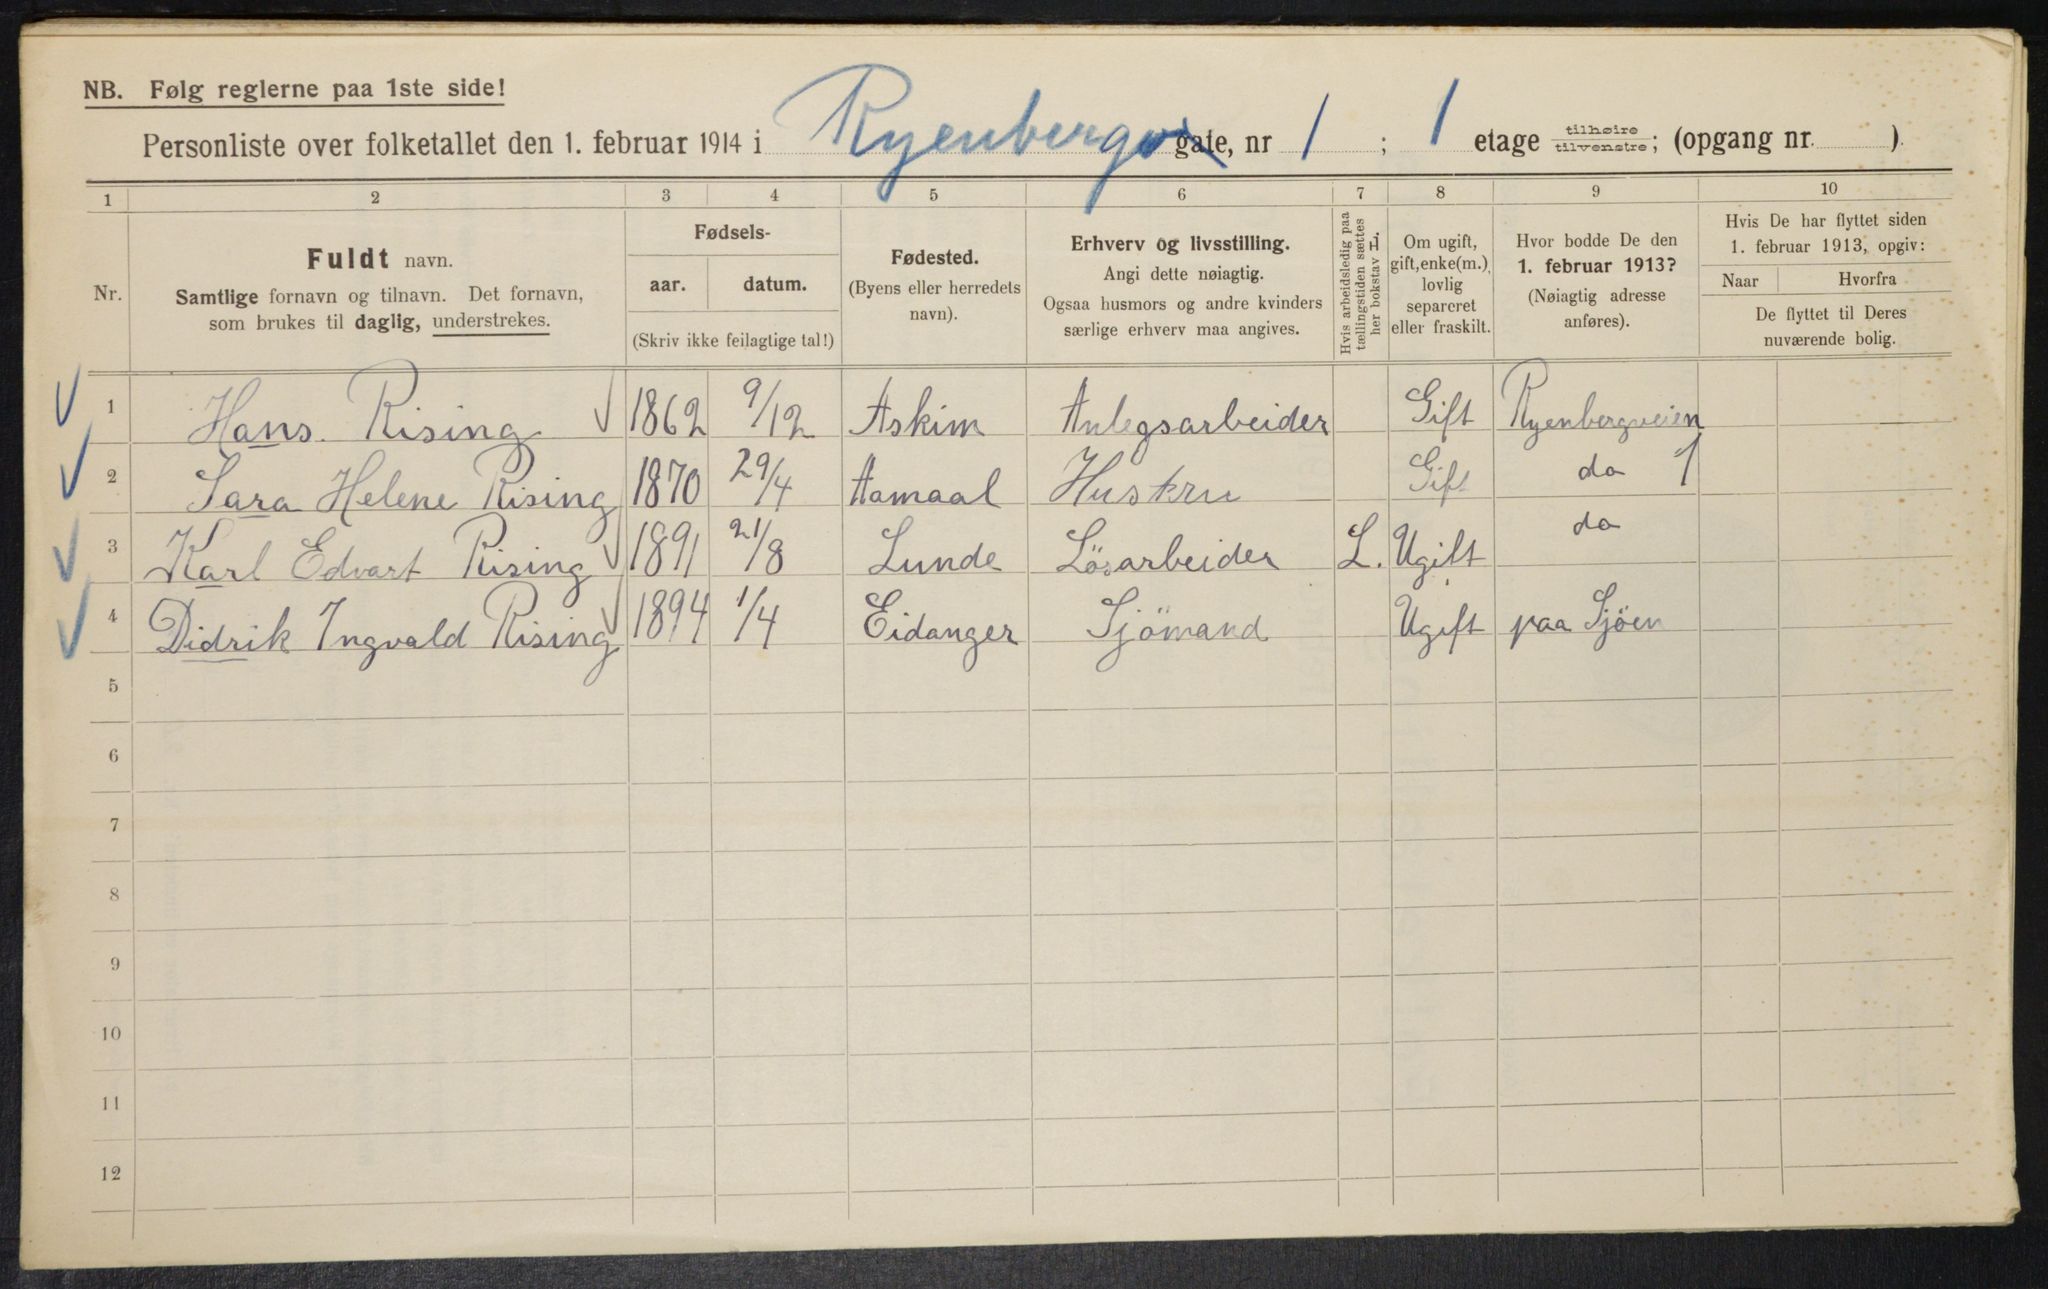 NB. Følg reglerne paa 1ste side!
Personliste over folketallet den 1. februar 1914 i Ryenbergv gate, nr 1 ; 1 etage tilhøire tilvenstre; (opgang nr. )
1 2 3 4 5 6 7 8 9 10
Nr.
Fuldt navn.
Samtlige fornavn og tilnavn. Det fornavn,
som brukes til daglig, understrekes.
Fødsels-
aar. datum.
(Skriv ikke feilagtige tal!)
Fødested.
(Byens eller herredets
navn).
Erhverv og livsstilling.
Angi dette nøiagtig.
Ogsaa husmors og andre kvinders
særlige erhverv maa angives.
Hvis arbeidsledig paa
tællingstiden sættes
her bokstav L.
Om ugift,
gift, enke(m.),
lovlig
separeret
eller fraskilt.
Hvor bodde De den
1. februar 1913?
(Nøiagtig adresse
anføres).
Hvis De har flyttet siden
1. februar 1913, opgiv:
Naar Hvorfra
De flyttet til Deres
nuværende bolig.
1 Hans. Rising 1862 9/12 Askim Anlegsarbeider Gift Ryenbergveien
2 Sara Helene Rising 1870 29/4 Aamaal Huskru Gift do 1
3 Karl Edvart Rising 1891 21/8 Lunde Lösarbeider L. Ugift do
4 Didrik Ingvald Rising 1894 1/4 Eidanger Sjömand Ugift paa Sjöen
5
6
7
8
9
10
11
12